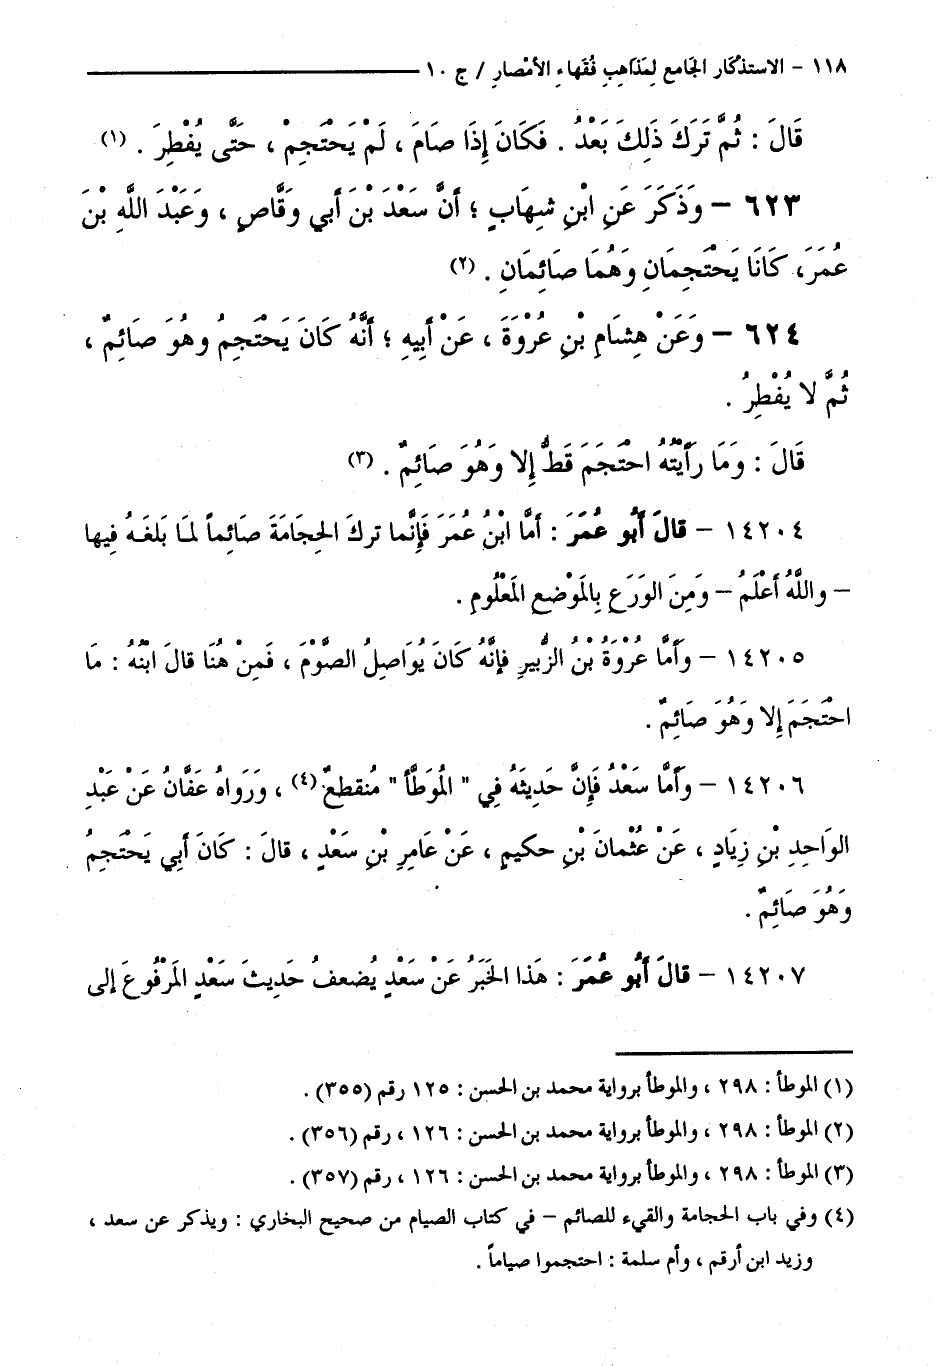 ١١٨ - الاستذكار الجامع لِمَذاهِبِ فُقَهاءِ الأمْصارِ / ج ١٠
قَالَ : ثُمَّ تَرَكَ ذَلِكَ بَعْدُ . فَكَانَ إِذَا صَامَ ، لَمْ يَحْتَجِمْ ، حَتَّى يُفْطِرَ . (١)
٦٢٣ - وَذَكَرَ عَنِ ابْنِ شِهَابٍ ؛ أَنَّ سَعْدَ بْنَ أَبي وَقَّاصٍ ، وَعَبْدَ اللَّهِ بْنَ
عُمَرَ، كَانَا يَحْتَجِمَانِ وَهُمَا صَائِمَانِ . (٢)
٦٢٤ - وَعَنْ هِشَامِ بْنِ عُرْوَةَ ، عَنْ أَبِيهِ ؛ أَنَّهُ كَانَ يَحْتَجِمُ وهُوَ صَائِمٌ ،
ثُمَّ لا يُفْطِرُ .
قَالَ : وَمَا رَأَيْتُهُ احْتَجَمَ قَطُّ إِلا وَهُوَ صَائِمٌ . (٣)
١٤٢٠٤ - قالَ أَبُو عُمَرَ : أَمَّا ابْنُ عُمَرَ فَإِنَّما تركَ الحِجَامَةَ صَائِماً لمَا بَلَغَهُ فِيها
- واللَّهُ أَعْلَمُ - وَمِنَ الوَرَعِ بِالمَوْضعِ المَعْلُومِ .
١٤٢٠٥ - وأَمَّا عُرْوَةُ بْنُ الزُّبيرِ فإنَّهُ كَانَ يُوَاصِلُ الصَّوْمَ ، فَمِنْ هُنَا قالَ ابْنُهُ : مَا
احْتَجَمَ إِلا وَهُوَ صَائِمٌ .
١٤٢٠٦ - وأَمَّا سَعْدُ فَإِنَّ حَدِيثَهُ فِي " المُوَطَّأ " مُنقطعٌ (٤) ، وَرَواهُ عَفَّانُ عَنْ عَبْدِ
الوَاحِدِ بْنِ زِيَادٍ ، عَنْ عُثْمانَ بْنِ حكيمٍ ، عَنْ عَامِرِ بْنِ سَعْدٍ ، قالَ : كَانَ أَبِي يَحْتَجِمُ
وَهُوَ صَائِمٌ .
١٤٢٠٧ - قالَ أَبُو عُمَرَ : هَذا الخَبَرُ عَنْ سَعْدٍ يُضعفُ حَدِيثَ سَعْدٍ المَرْفُوعَ إِلى
(١) الموطأ : ٢٩٨ ، والموطأ برواية محمد بن الحسن : ١٢٥ رقم (٣٥٥) .
(٢) الموطأ : ٢٩٨ ، والموطأ برواية محمد بن الحسن : ١٢٦ ، رقم (٣٥٦) .
(٣) الموطأ : ٢٩٨ ، والموطأ برواية محمد بن الحسن : ١٢٦ ، رقم (٣٥٧) .
(٤) وفي باب الحجامة والقيء للصائم - في كتاب الصيام من صحيح البخاري : ويذكر عن سعد ،
وزيد ابن أرقم ، وأم سلمة : احتجموا صياماً .